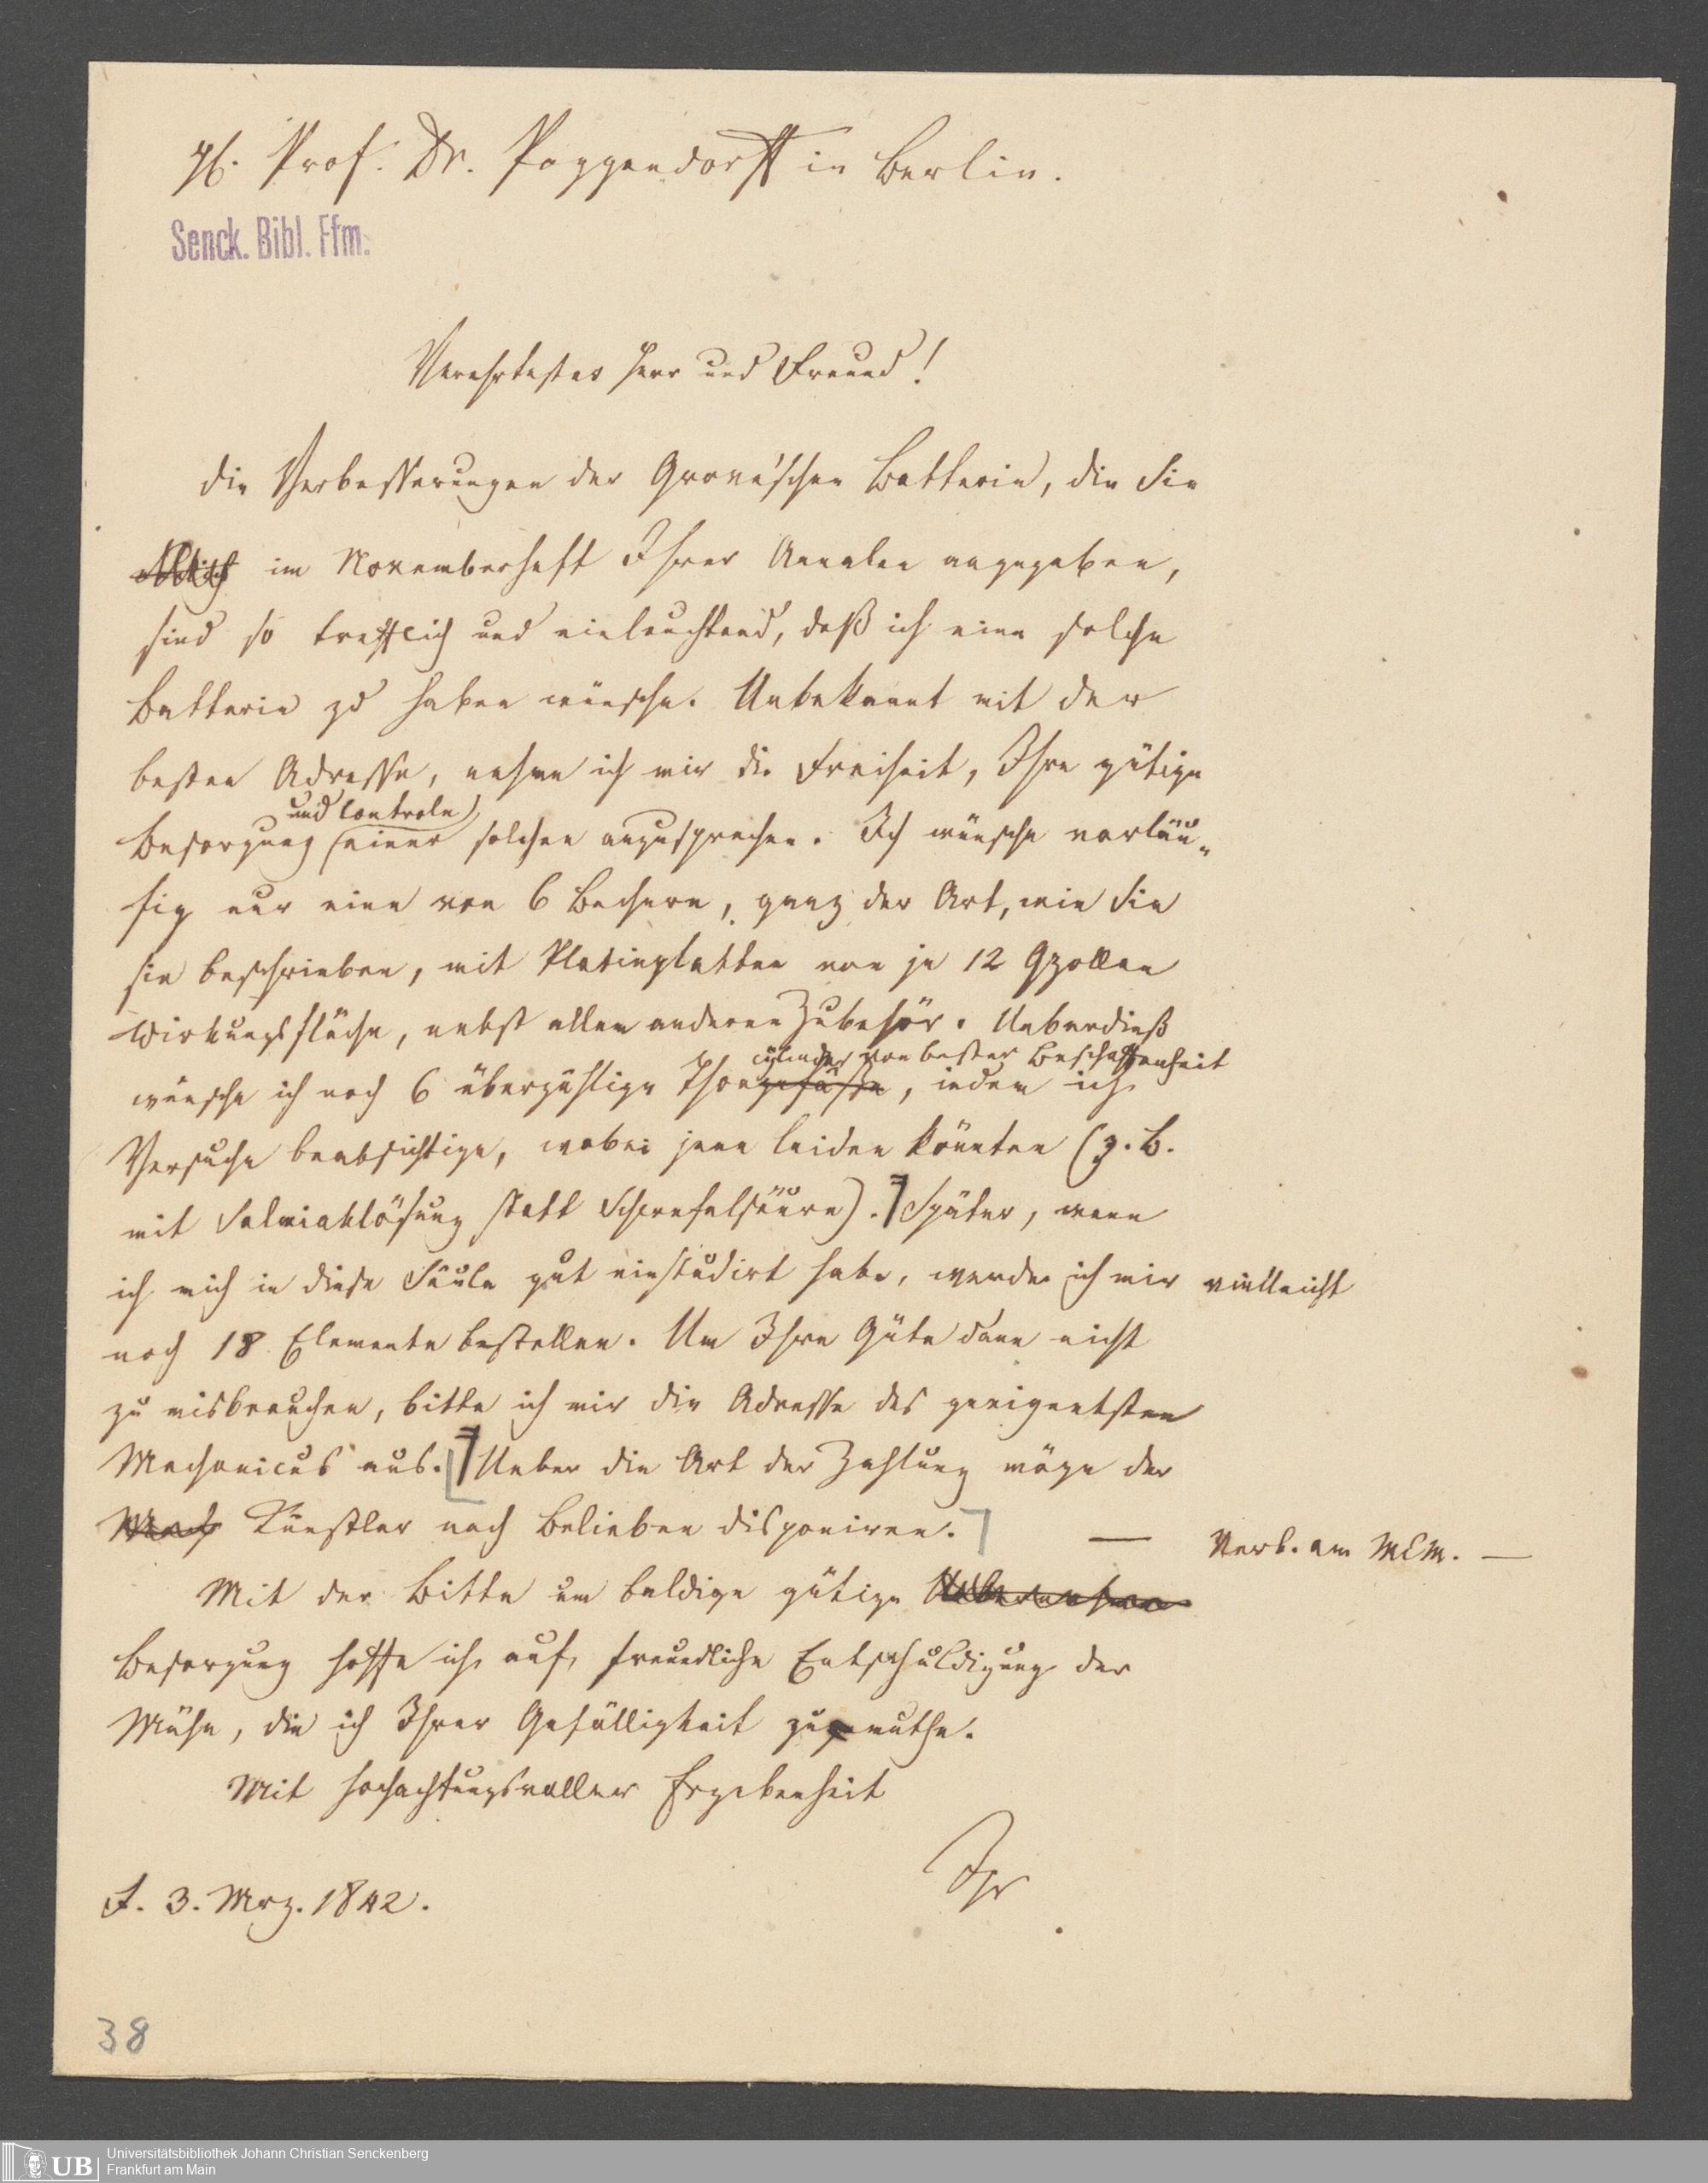 H. Prof. Dr. Poggendorff in Berlin.
Senck. Bibl. Ffm.
Verehrtester Herr und Freund!
Die Verbesserungen der Grove'schen Batterie, die Sie
im Novemberheft Ihrer Annalen angegeben,
sind so trefflich und einleuchtend, daß ich eine solche
Batterie zu haben wünsche. Unbekannt mit der
besten Adresse, nehme ich mir die Freiheit, Ihre gütige
und Controle
Besorgung einer solchen anzusprechen. Ich wünsche vorläu-
fig nur eine von 6 Bechern, ganz der Art, wie Sie
sie beschrieben, mit Platinplatten von je 12 Qzollen
Wirkungsfläche, nebst allem anderen Zubehör. Ueberdieß
cylinder von bester Beschaffenheit
wünsche ich noch 6 überzählige Thongefäße, indem ich
Versuche beabsichtige, wobei jene leiden könnten (z. B.
mit Salmiaklösung statt Schwefelsäure). Später, wenn
ich mich in diese Säule gut einstudirt habe, werde ich mir vielleicht
noch 18 Elemente bestellen. Um Ihre Güte dann nicht
zu misbrauchen, bitte ich mir die Adresse des geeignetsten
Mechanicus aus. Ueber die Art der Zahlung möge der
Mech Künstler nach Belieben disponiren. — Verb. am MEM. —
Mit der Bitte um baldige gütige
Besorgung hoffe ich auf freundliche Entschuldigung der
Mühe, die ich Ihrer Gefälligkeit zumuthe.
Mit hochachtungsvoller Ergebenheit
Ihr
F. 3. Mrz. 1842.
38
UB Universitätsbibliothek Johann Christian Senckenberg
Frankfurt am Main